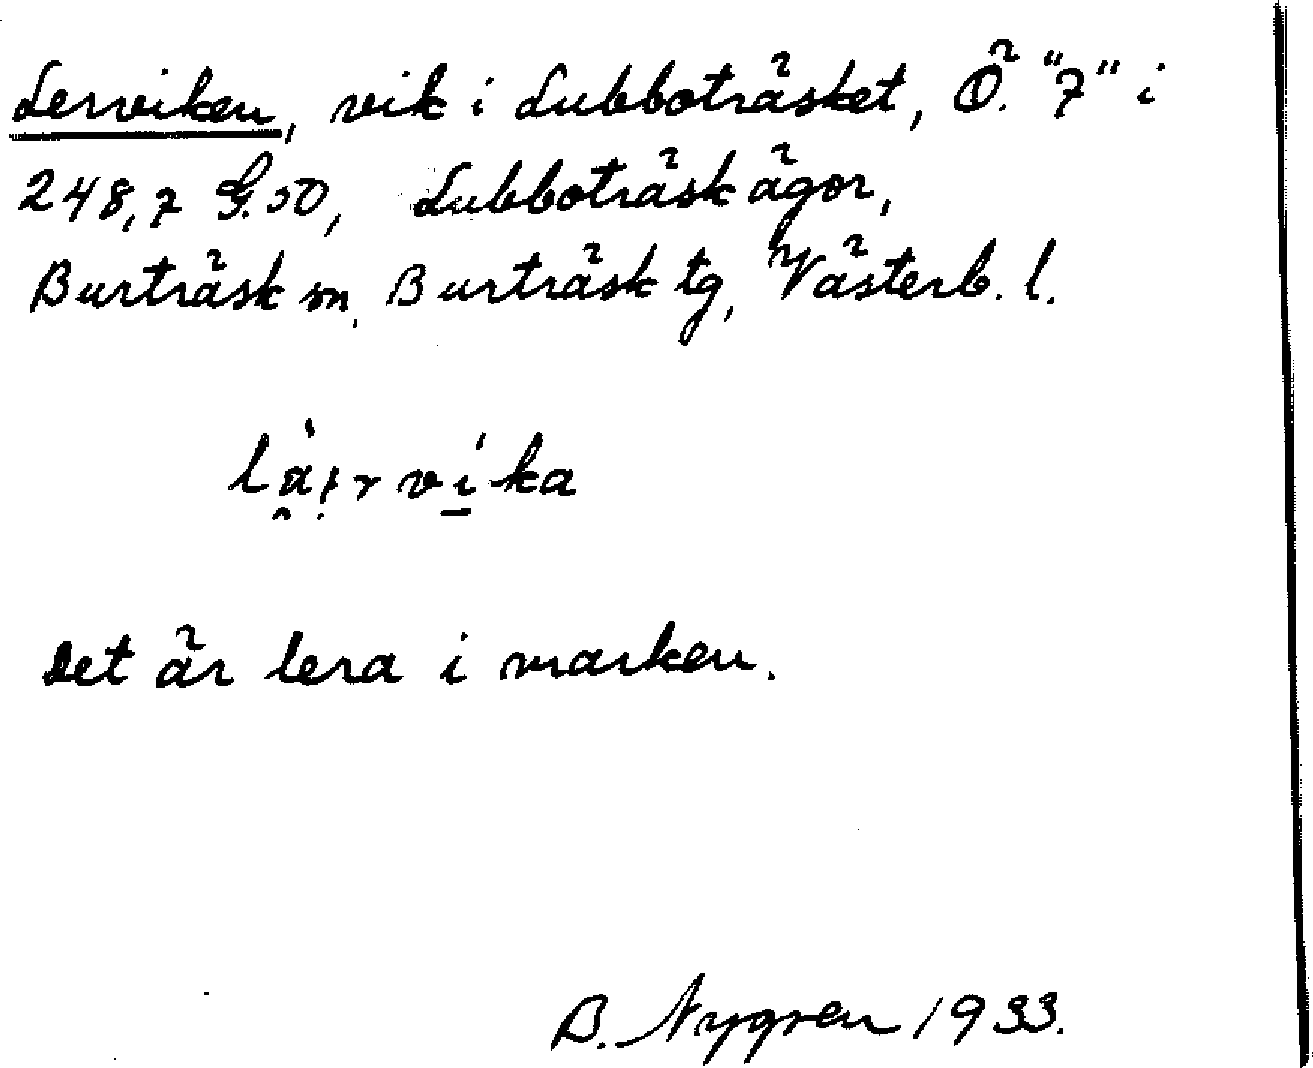 Lerviken, vik i Lubboträsket, Ö. "7" i
248,7 G.50, Lubboträsk ägor,
Burträsk sn, Burträsk tg, Västerb. l.
lä̀:rvi̱ka
Det är lera i marken.
B. Nygren 1933.